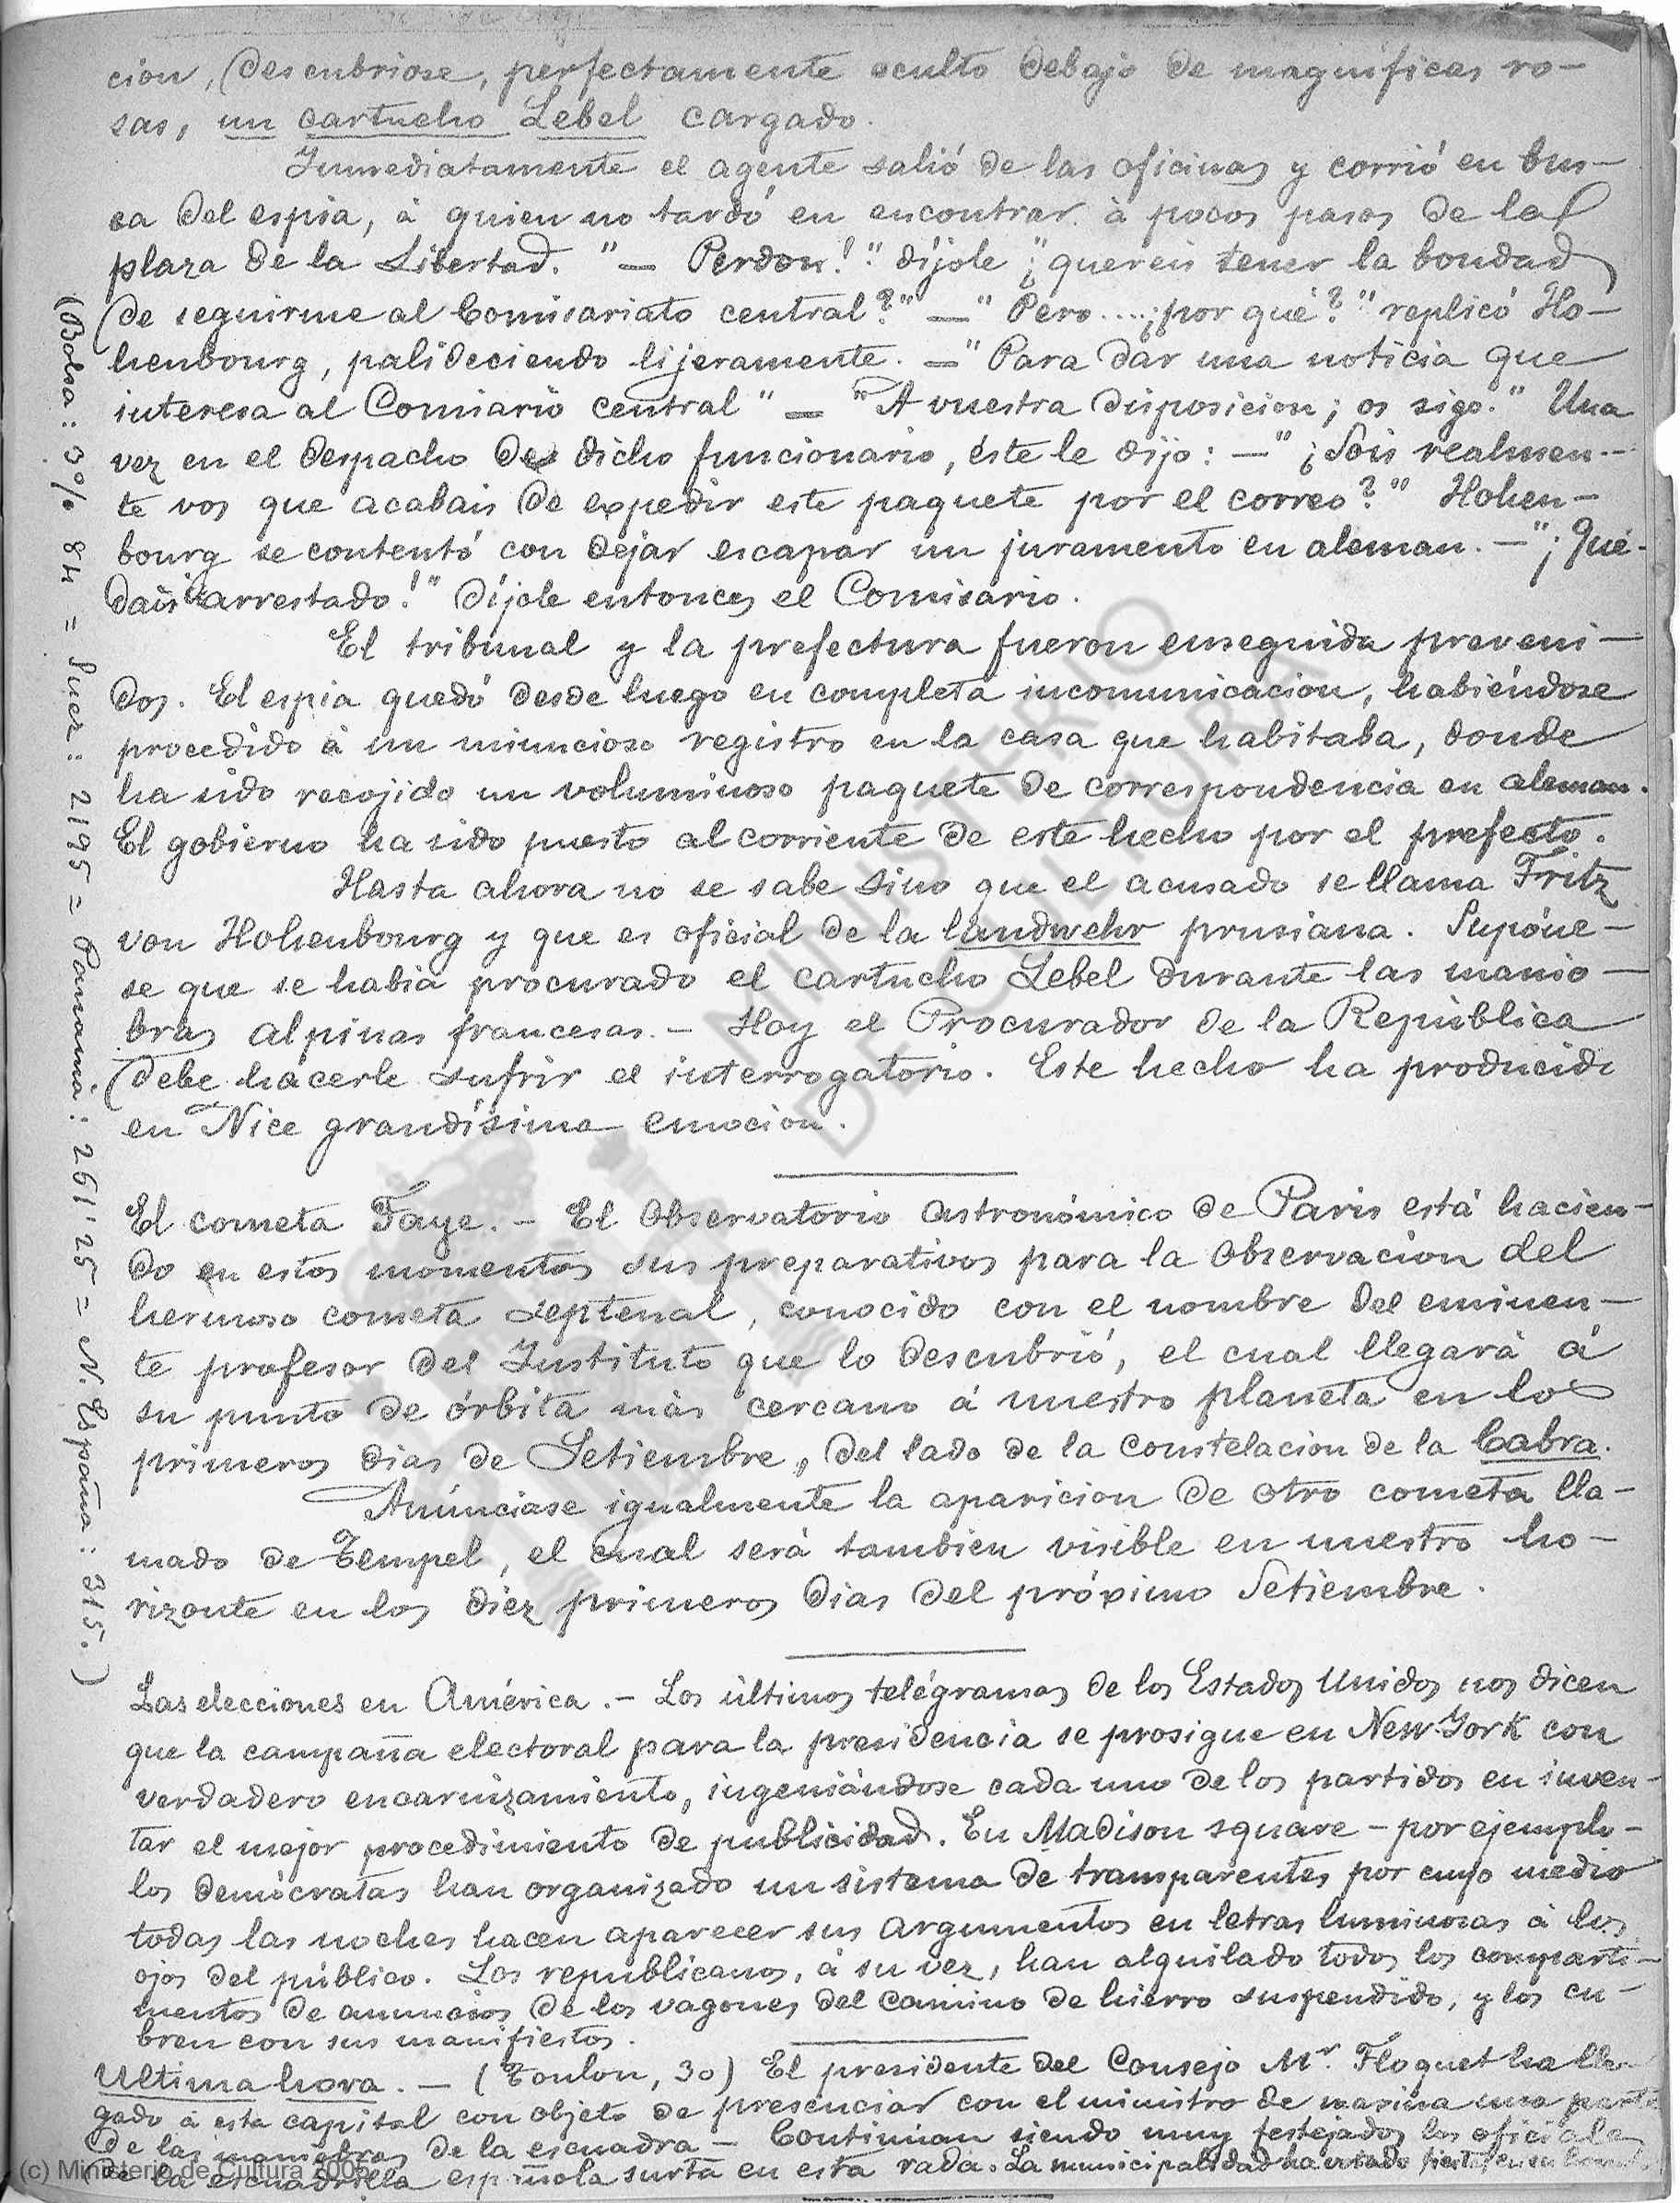 cion, descubriose, perfectamente oculto debajo de magníficas ro-
sas, un cartucho Lebel cargado.
Inmediatamente el agente salió de las oficinas y corrió en bus-
ca del espia, á quien no tardó en encontrar á pocos pasos de la
plaza de la Libertad. "— Perdon!" díjole "¿quereis tener la bondad
de seguirme al Comisariato central?" —" Pero....¿por qué?" replicó Ho-
henbourg, palideciendo lijeramente. —" Para dar una noticia que
interesa al Comiario central " — " A vuestra disposicion; os sigo." Una
vez en el despacho de dicho funcionario, éste le dijo: — "¿Sois realmen-
te vos que acabais de expedir este paquete por el correo?" Hohen-
bourg se contentó con dejar escapar un juramento en aleman. —"¡Que-
dais arrestado!" díjole entonces el Comisario.
El tribunal y la prefectura fueron enseguida preveni-
dos. El espia quedó desde luego en completa incomunicacion, habiéndose
procedido á un minucioso registro en la casa que habitaba, donde
ha sido recojido un voluminoso paquete de correspondencia en aleman.
El gobierno ha sido puesto al corriente de este hecho por el prefecto.
Hasta ahora no se sabe sino que el acusado se llama Fritz
von Hohenbourg y que es oficial de la landwehr prusiana. Supóne-
se que se habia procurado el cartucho Lebel durante las manio-
bras alpinas francesas. — Hoy el Procurador de la República
debe hacerle sufrir el interrogatorio. Este hecho ha producido
en Nice grandísima emocion.
El cometa Faye. — El Observatorio astronómico de Paris está hacien-
do en estos momentos sus preparativos para la observacion del
hermoso cometa septenal, conocido con el nombre del eminen-
te profesor del Instituto que lo descubrió, el cual llegará á
su punto de órbita más cercano á nuestro planeta en los
primeros dias de Setiembre, del lado de la constelacion de la Cabra.
Anúnciase igualmente la aparicion de otro cometa lla-
mado de Tempel, el cual será tambien visible en nuestro ho-
rizonte en los diez primeros dias del próximo Setiembre.
Las elecciones en América. — Los últimos telégramas de los Estados Unidos nos dicen
que la campaña electoral para la presidencia se prosigue en New-York con
verdadero encarnizamiento, ingeniándose cada uno de los partidos en inven-
tar el mejor procedimiento de publicidad. En Madison square — por ejemplo —
los demócratas han organizado un sistema de transparentes por cuyo medio
todas las noches hacen aparecer sus argumentos en letras luminosas á los
ojos del público. Los republicanos, á su vez, han alquilado todos los comparti-
mentos de anuncios de los vagones del camino de hierro suspendido, y los cu-
bren con sus manifiestos.
Ultima hora. — (Toulon, 30) El presidente del Consejo Mr. Floquet ha lle-
gado á esta capital con objeto de presenciar con el ministro de marina una parte
de las maniobras de la escuadra — Continúan siendo muy festejados los oficiales
de la escuadrilla española surta en esta rada. La municipalidad ha
(Bolsa: 3% 84 = Suez: 2195 = Panamá: 261'25 = N. España: 315.)
MINISTERIO
DE CULTURA
(c) Ministerio de Cultura 2005